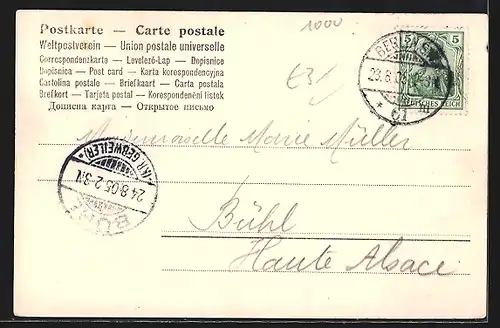 Postkarte — Carte postale
Weltpostverein — Union postale universelle
Correspondenzkarte — Levelező-Lap — Dopisnice
Dopisnica — Post card — Karta korespondencyjna
Cartolina postale — Briefkaart — Carta postala
Brefkort — Tarjeta postal — Korespondenční lístek
Дописна карта — Открытое письмо
1000
£3/-
5 5
DEUTSCHES REICH
BERLIN S.W.
23.8.05
* 61
Mademoiselle Marie Müller
BÜHL
(KR. GEBWEILER)
24.8.05.2-3N
Bühl
Haute Alsace